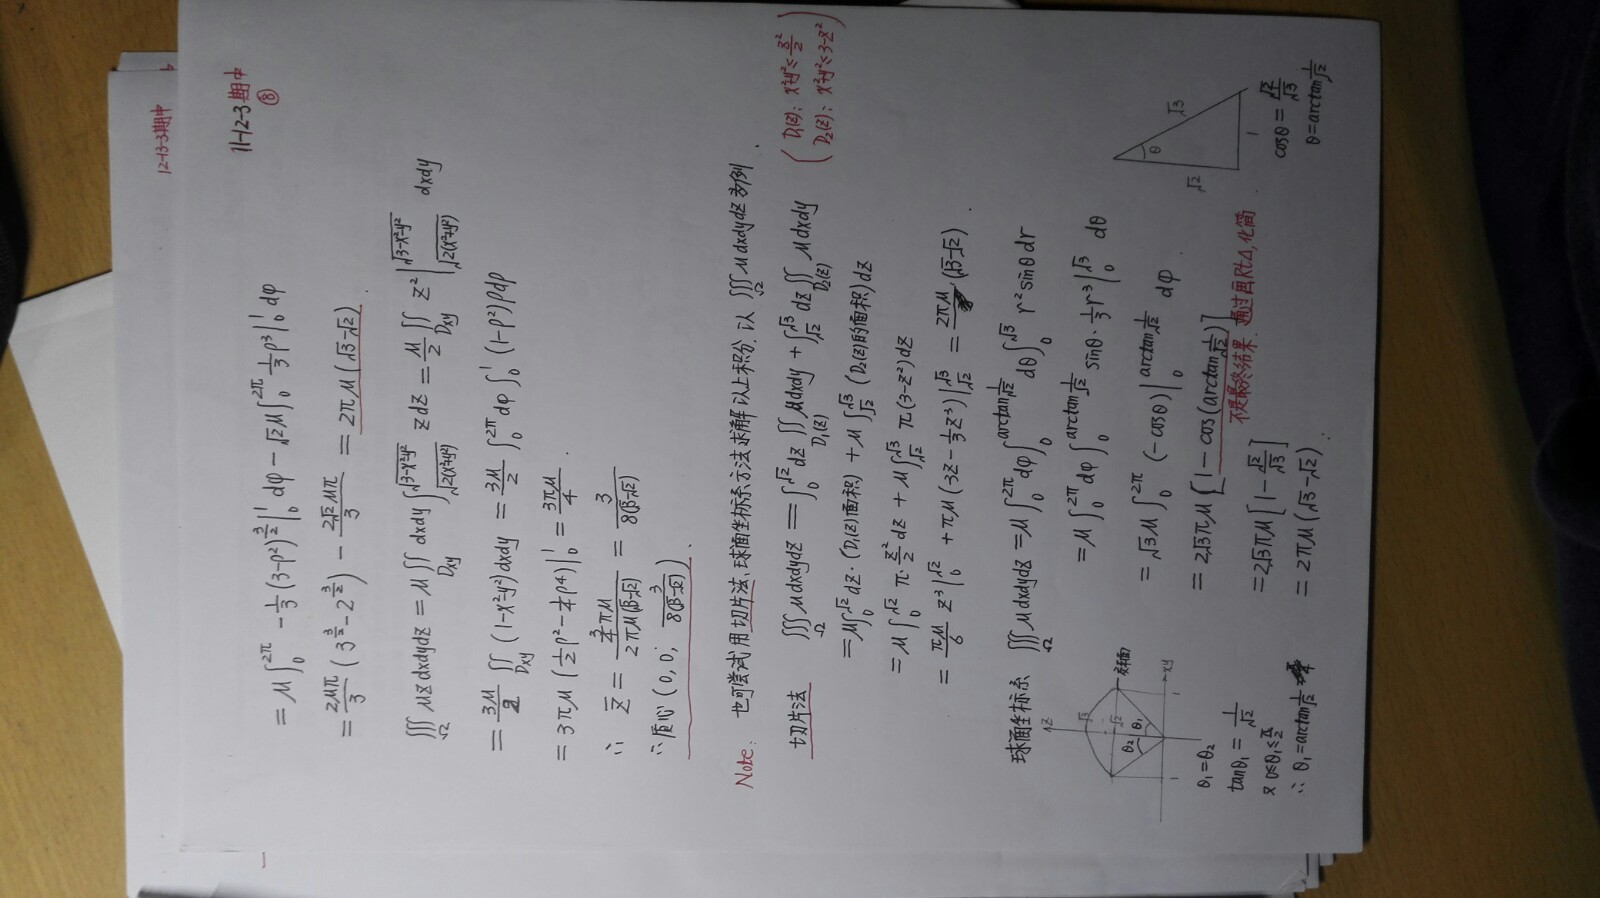 12-13-3期中
11-12-3期中
⑧
= μ∫₀^{2π} -1/3 (3-ρ²)^{3/2} |₀¹ dφ - √2 μ∫₀^{2π} 1/3 ρ³ |₀¹ dφ
= 2μπ/3 (3^{3/2} - 2^{3/2}) - 2√2 μπ/3 = 2πμ(√3-√2)
∭_Ω μz dxdydz = μ∬_{Dxy} dxdy ∫_{√2(x²+y²)}^{√3-x²-y²} z dz = μ/2 ∬_{Dxy} z² |_{√2(x²+y²)}^{√3-x²-y²} dxdy
= 3μ/2 ∬_{Dxy} (1-x²-y²) dxdy = 3μ/2 ∫₀^{2π} dφ ∫₀¹ (1-ρ²)ρdρ
= 3πμ (1/2 ρ² - 1/4 ρ⁴) |₀¹ = 3πμ/4
∴ z̄ = (3/4 πμ) / (2πμ(√3-√2)) = 3/(8(√3-√2))
∴ 质心 (0, 0, 3/(8(√3-√2))).
Note: 也可尝试用切片法、球面坐标系方法求解以上积分. 以 ∭_Ω μdxdydz 为例.
切片法 ∭_Ω μdxdydz = ∫₀^{√2} dz ∬_{D₁(z)} μdxdy + ∫_{√2}^{√3} dz ∬_{D₂(z)} μdxdy
( D₁(z): x²+y² ≤ z²/2
D₂(z): x²+y² ≤ 3-z² )
= μ∫₀^{√2} dz·(D₁(z)面积) + μ∫_{√2}^{√3} (D₂(z)的面积)dz
= μ∫₀^{√2} π·z²/2 dz + μ∫_{√2}^{√3} π(3-z²)dz
= πμ/6 z³ |₀^{√2} + πμ(3z - 1/3 z³) |_{√2}^{√3} = 2πμ (√3-√2).
球面坐标系 ∭_Ω μdxdydz = μ∫₀^{2π} dφ ∫₀^{arctan 1/√2} dθ ∫₀^{√3} r² sinθ dr
= μ∫₀^{2π} dφ ∫₀^{arctan 1/√2} sinθ · 1/3 r³ |₀^{√3} dθ
= √3μ ∫₀^{2π} (-cosθ) |₀^{arctan 1/√2} dφ
= 2√3πμ [1 - cos(arctan 1/√2)]
不是最终结果. 通过画Rt△, 化简
= 2√3πμ [1 - √2/√3]
= 2πμ (√3-√2).
z
√3
√2
θ₂
θ₁
xy
1
1
θ₁ = θ₂
tanθ₁ = 1/√2
又 0≤θ₁≤π/2
∴ θ₁ = arctan 1/√2
θ
√3
√2
1
cosθ = √2/√3
θ = arctan 1/√2